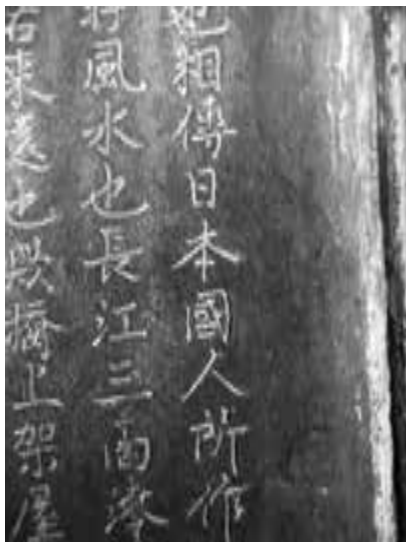 相傳日本國人所作
風水也長江三面
來遠也歟橋上架屋